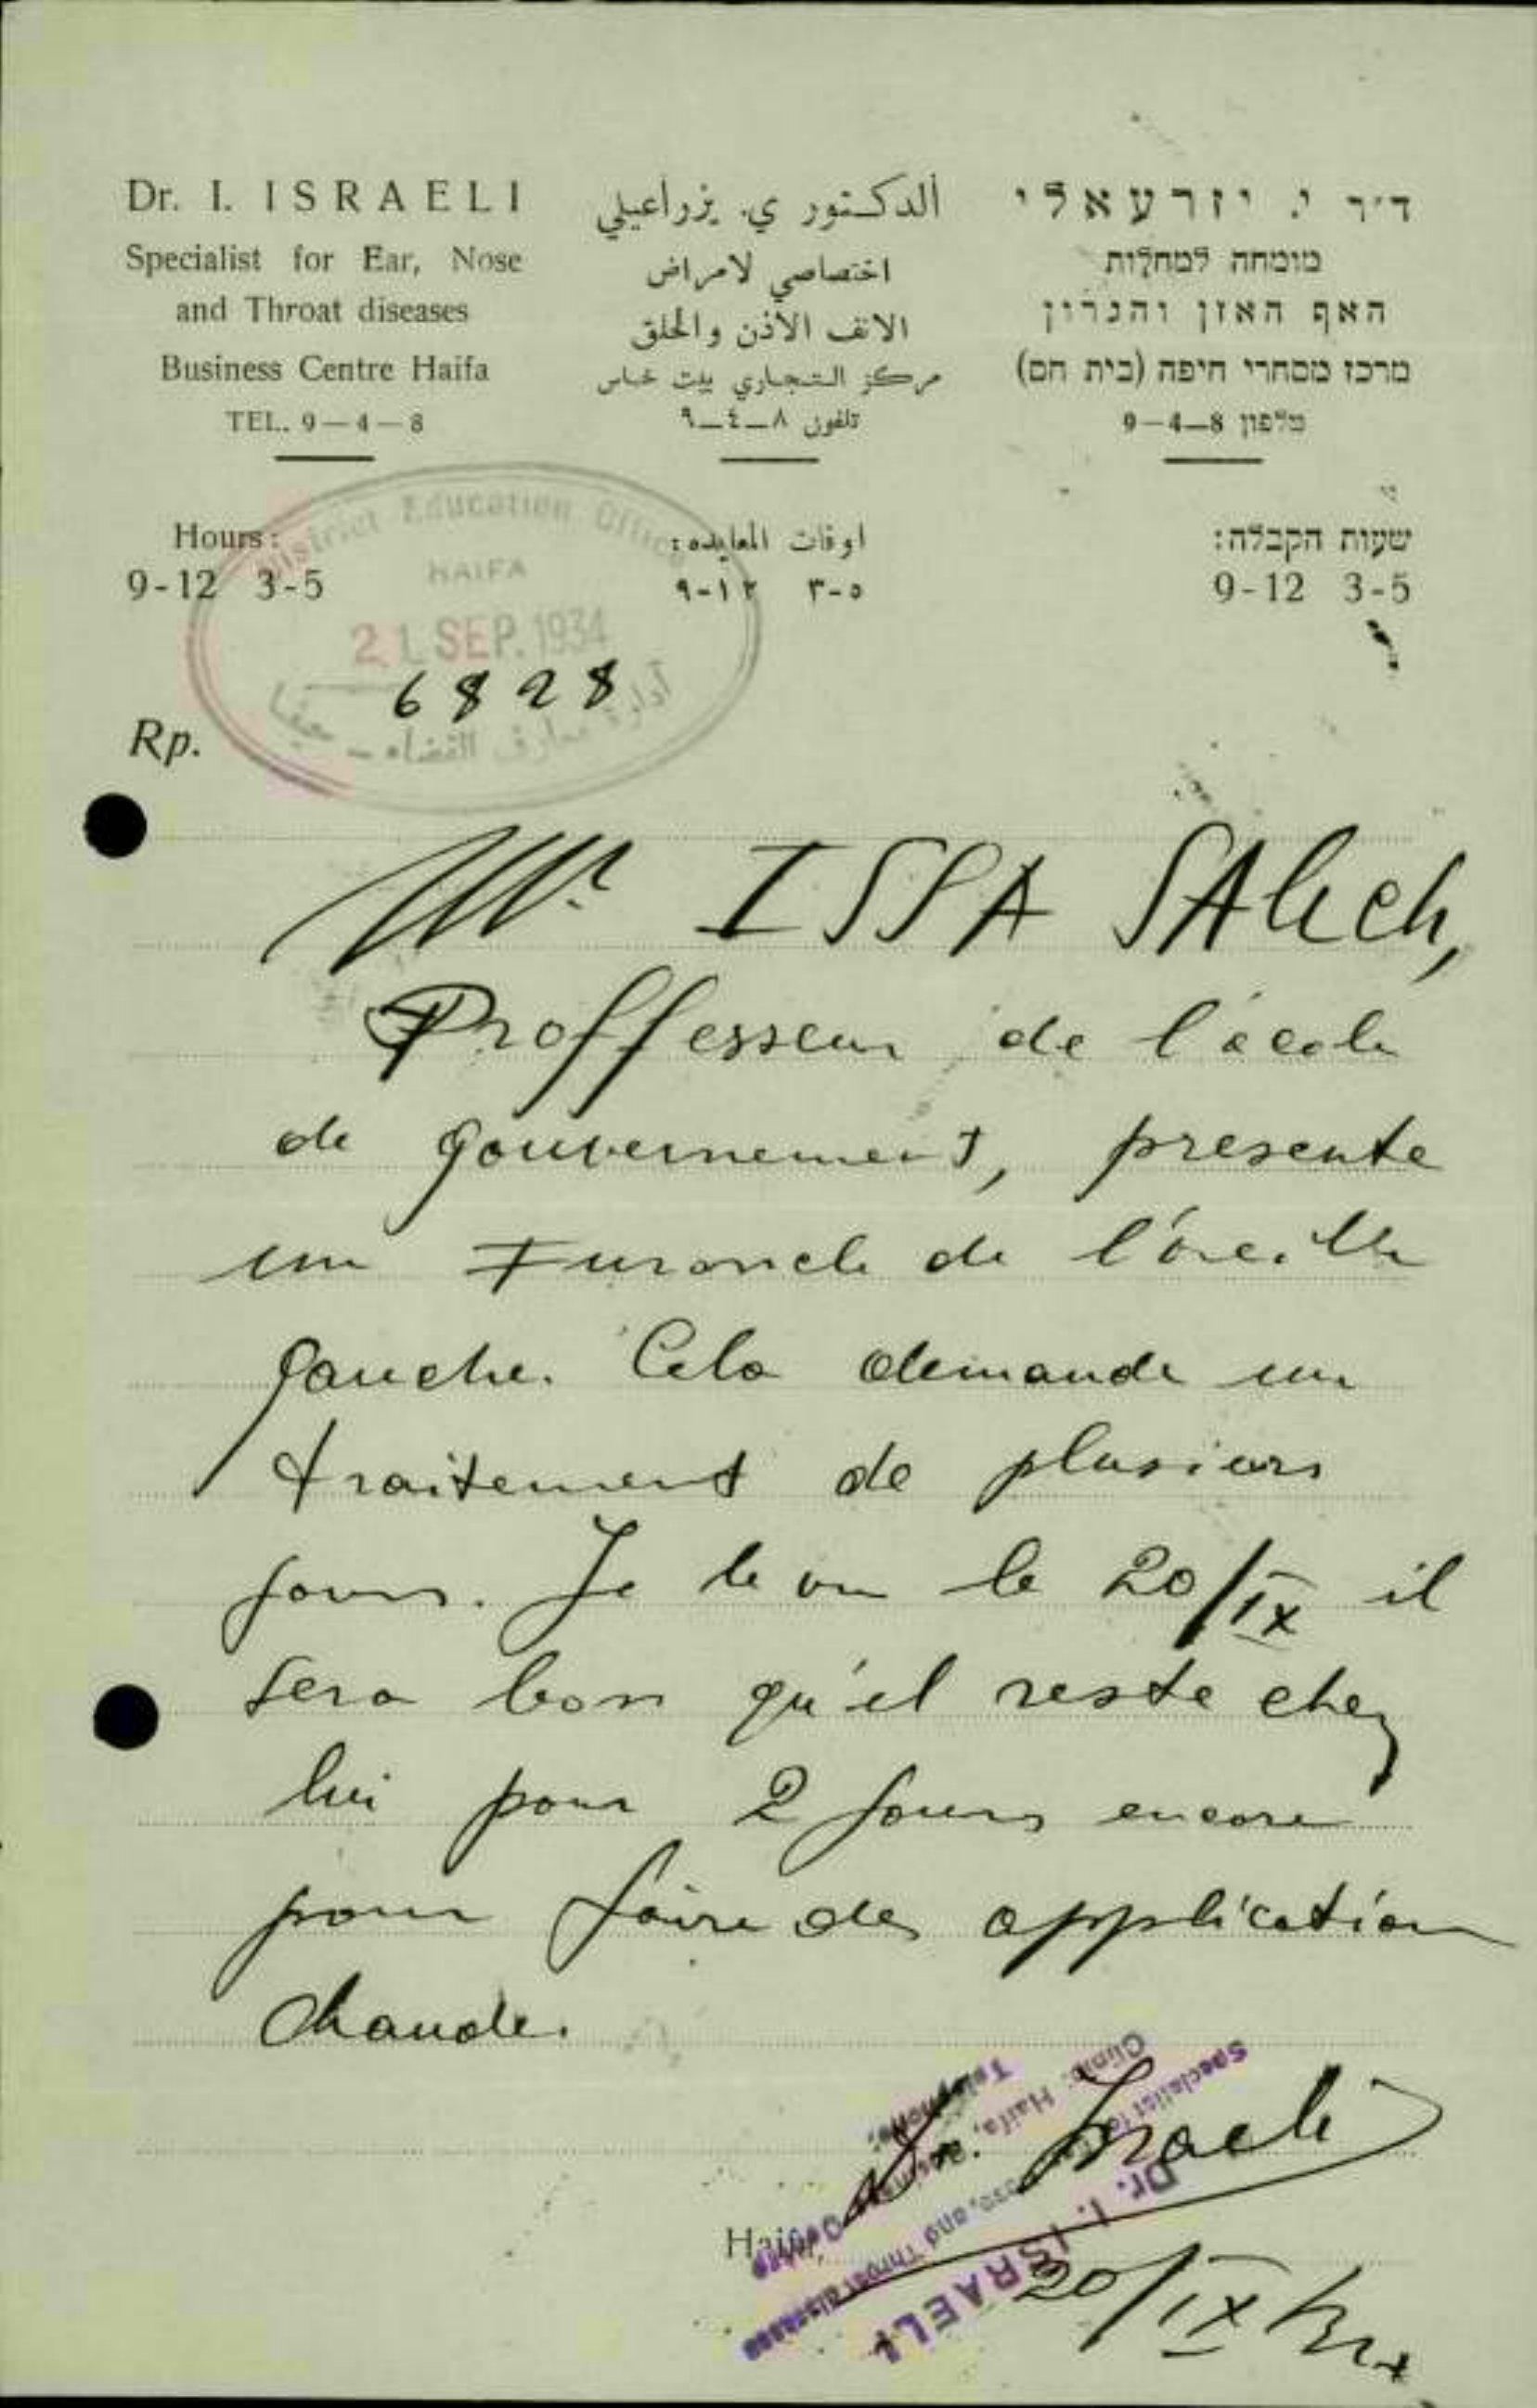 Dr. I. ISRAELI
Specialist for Ear, Nose
and Throat diseases
Business Centre Haifa
TEL. 9—4—8
Hours:
9-12 3-5
الدكتور ي. يزراعيلي
اختصاصي لامراض
الانف الاذن والحلق
مركز التجاري بيت خاس
تلفون ٨—٤—٩
اوقات المعايده:
٩-١٢ ٣-٥
ד״ר י. יזרעאלי
מומחה למחלות
האף האזן והגרון
מרכז מסחרי חיפה (בית חס)
טלפון 9—4—8
שעות הקבלה:
9-12 3-5
District Education Office
HAIFA
21 SEP. 1934
6828
ادارة معارف القضاء - حيفا
Rp.
Mr ISSA SAleh,
Proffesseur de l'école
de gouvernement, presente
un Furoncle de l'oreille
gauche. Cela demande un
traitement de plusieurs
jours. Je le vu le 20/IX il
sera bon qu'il reste chez
lui pour 2 jours encore
pour faire des application
chaude.
Dr. Israeli
Haifa,
20/IX
Dr. I. ISRAELI
Specialist for Ear, Nose, and Throat diseases
Clinic: Haifa, Business Centre
Telephone: